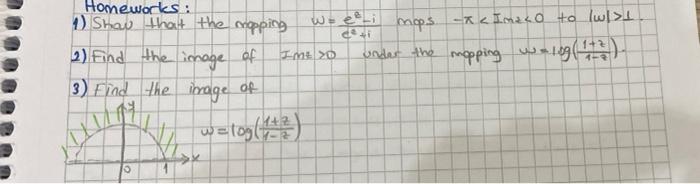 Homeworks:
1) Show that the mapping w = e^z-i / e^z+i maps -π < Imz < 0 to |w|>1.
2) Find the image of Imz > 0 under the mapping w = log(1+z / 1-z).
3) Find the image of
y
w = log(1+z / 1-z)
0 1 x